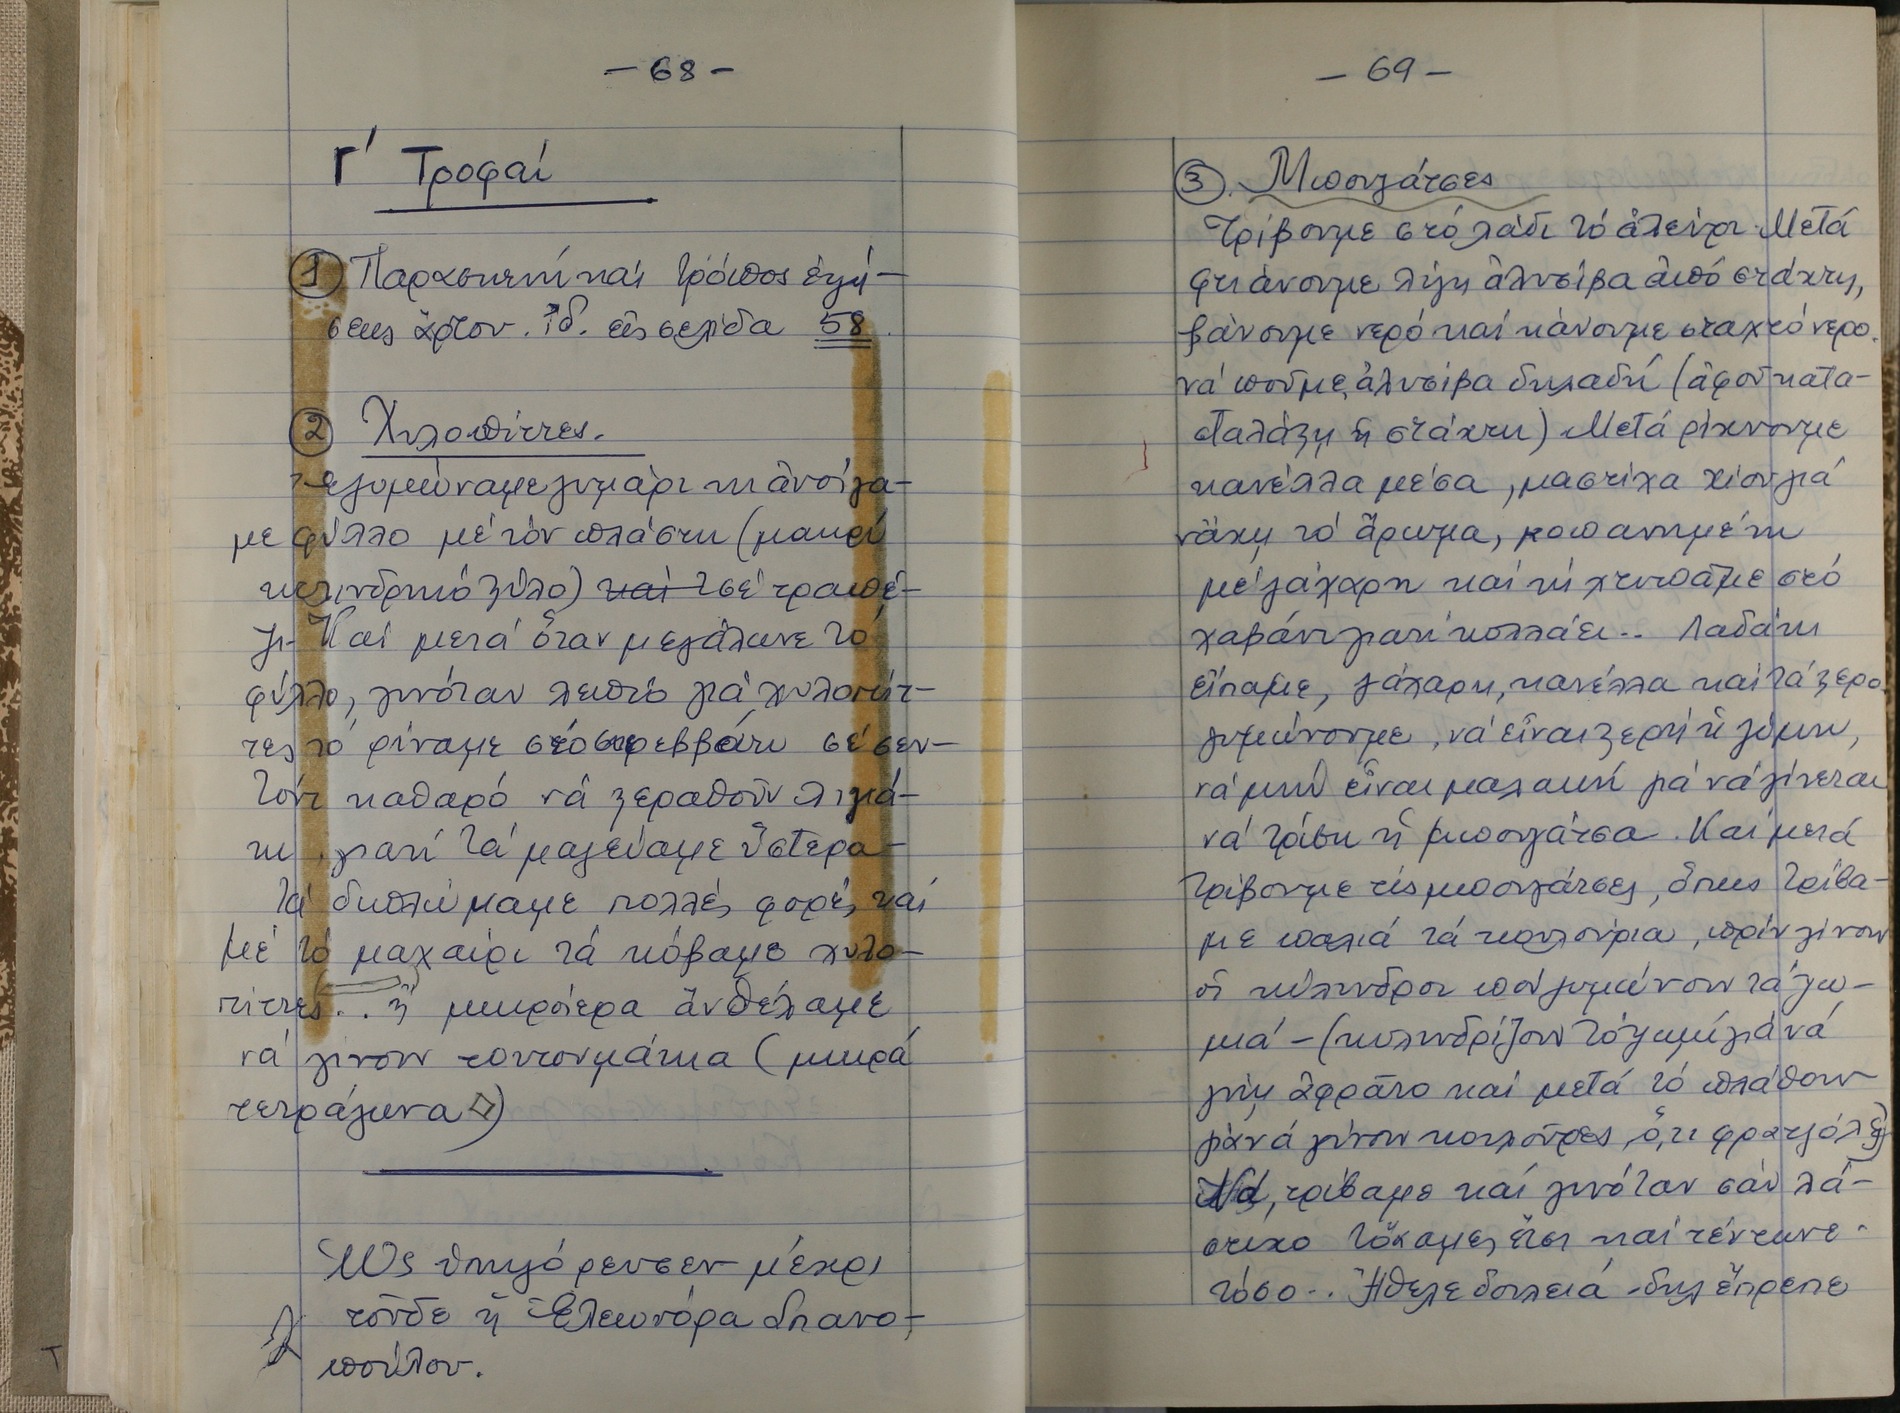 - 68 -
Γ' Τροφαί
① Παρασκευή καί τρόπος ἑψή-
σεως ἄρτου. ἰδ. εἰς σελίδα 58.
② Χυλοπίττες.
ζυμώναμε ζυμάρι κι ἀνοίγα-
με φύλλο μέ τόν πλάστη (μακρύ
κυλινδρικό ξύλο) καί σέ τραπέ-
ζι. Καί μετά ὅταν μεγάλωνε τό
φύλλο, γινόταν λεπτό γιά χυλοπίτ-
τες τό ρίναμε στό κρεββάτι σέ σεν-
τόνι καθαρό νά ξεραθοῦν λιγά-
κι, γιατί τά μαζεύαμε ὕστερα-
τά διπλώναμε πολλές φορές καί
μέ τό μαχαίρι τά κόβαμε χυλο-
πίττες... ἤ μικρότερα ἄν θέλαμε
νά γίνουν τουτουμάκια (μικρά
τετράγωνα ◇)
Ὡς ὑπηγόρευσεν μέχρι
τοῦδε ἡ Ἐλεωνόρα Σπανο-
πούλου.
- 69 -
③. Μπουγάτσες
Τρίβουμε στό λάδι τό ἀλεύρι. Μετά
φτιάνουμε λίγη ἀλυσίβα ἀπό στάχτη,
βάνουμε νερό καί κάνουμε σταχτόνερο.
νά ποῦμε, ἀλυσίβα δηλαδή (ἀφοῦ κατα-
σταλάξη ἡ στάχτη) Μετά ρίχνουμε
κανέλλα μέσα, μαστίχα χίου γιά
νἄχη τό ἄρωμα, κοπανημένη
μέ ζάχαρη καί τή χτυπᾶμε στό
χαβάνι γιατί κολλάει.. Λαδάκι
εἴπαμε, ζάχαρη, κανέλλα καί τά ξερο
ζυμώνουμε, νά εἶναι ξερή ἡ ζύμη,
νά μήν εἶναι μαλακή γιά νά γίνεται
νά τρίβη ἡ μπουγάτσα. Καί μετά
τρίβουμε τίς μπουγάτσες, ὅπως τρίβα-
με παλιά τά κουλούρια, πρίν γίνουν
οἱ κύλινδροι πού ζυμώνουν τά ψω-
μιά - (κυλινδρίζουν τό ψωμί γιά νά
γίνη ἀφρᾶτο καί μετά τό πλάθουν
γιά νά γίνουν κουλοῦρες, ὅ,τι φρατζόλες)
Νά, τρίβαμε καί γινόταν σάν λά-
στιχο τὄκαμες ἔτσι καί τέντωνε
τόσο... Ἤθελε δουλειά - δηλ ἔπρεπε